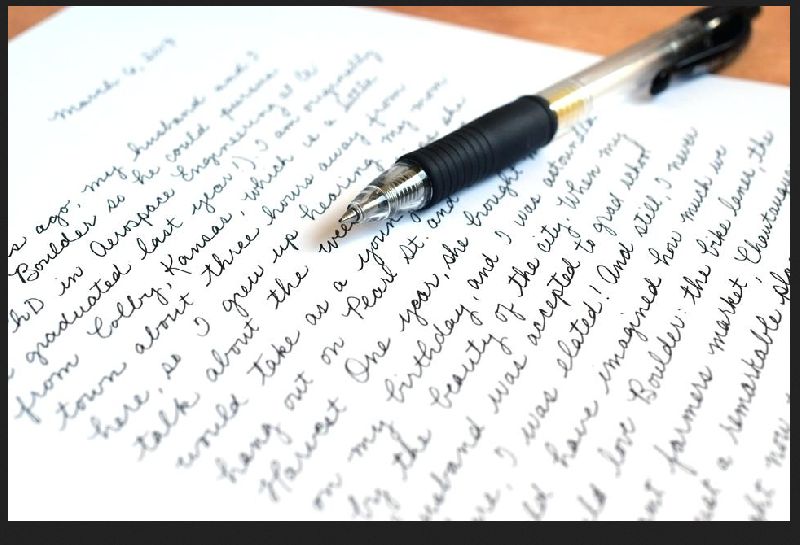 March 6, 2017
s ago, my husband and I
Boulder so he could pursue
hD in Aerospace Engineering at
graduated last year!). I am originally
from Colby, Kansas, which is a little
town about three hours away from
here, so I grew up hearing my mom
talk about the she
would take as a young
hang out on Pearl St. and
Harvest One year, she brought
on my birthday, and I was
by the beauty of the city. When my
husband was accepted to grad school
I was elated! And still, I never
have imagined how much we
love Boulder: the bike lanes, the
farmers market, Chautauqua
a remarkable
now